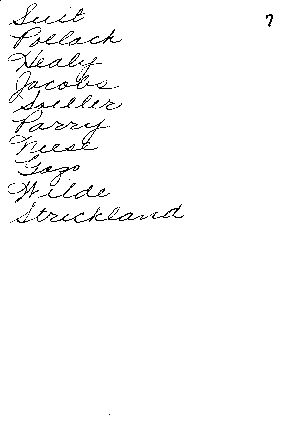 7
Suit
Pollack
Healy
Jacobs
Soeller
Parry
Neese
Gogo
Wilde
Strickland